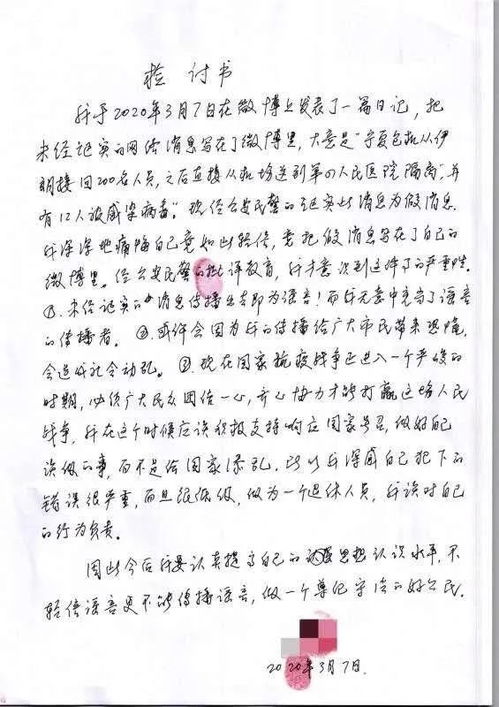 检讨书
我于2020年3月7日在微博上发表了一篇日记，把
未经证实的网络消息写在了微博里，大意是"宁夏包机从伊
朗接回200名人员，之后直接从机场送到第四人民医院隔离"，并
有12人被感染病毒"。现经公安民警的证实此消息为假消息，
我深深地痛悔自己竟如此轻信，竟把假消息写在了自己的
微博里。经公安民警的批评教育，我才意识到这件事的严重性。
①、未经证实的消息传播出去即为谣言！而我无意中充当了谣言
的传播者。②或许会因为我的传播给广大市民带来恐慌，
会造成社会动乱。③现在国家抗疫战争正进入一个严峻的
时期，必须广大民众团结一心，齐心协力才能打赢这场人民
战争，我在这个时候应该积极支持响应国家号召，做好自己
该做的事，而不是给国家添乱，所以我深感自己犯下的
错误很严重，而且很低级，做为一个退休人员，我该对自己
的行为负责。
因此今后我要认真提高自己的思想认识水平，不
轻信谣言更不能传播谣言，做一个遵纪守法的好公民。
2020年3月7日.